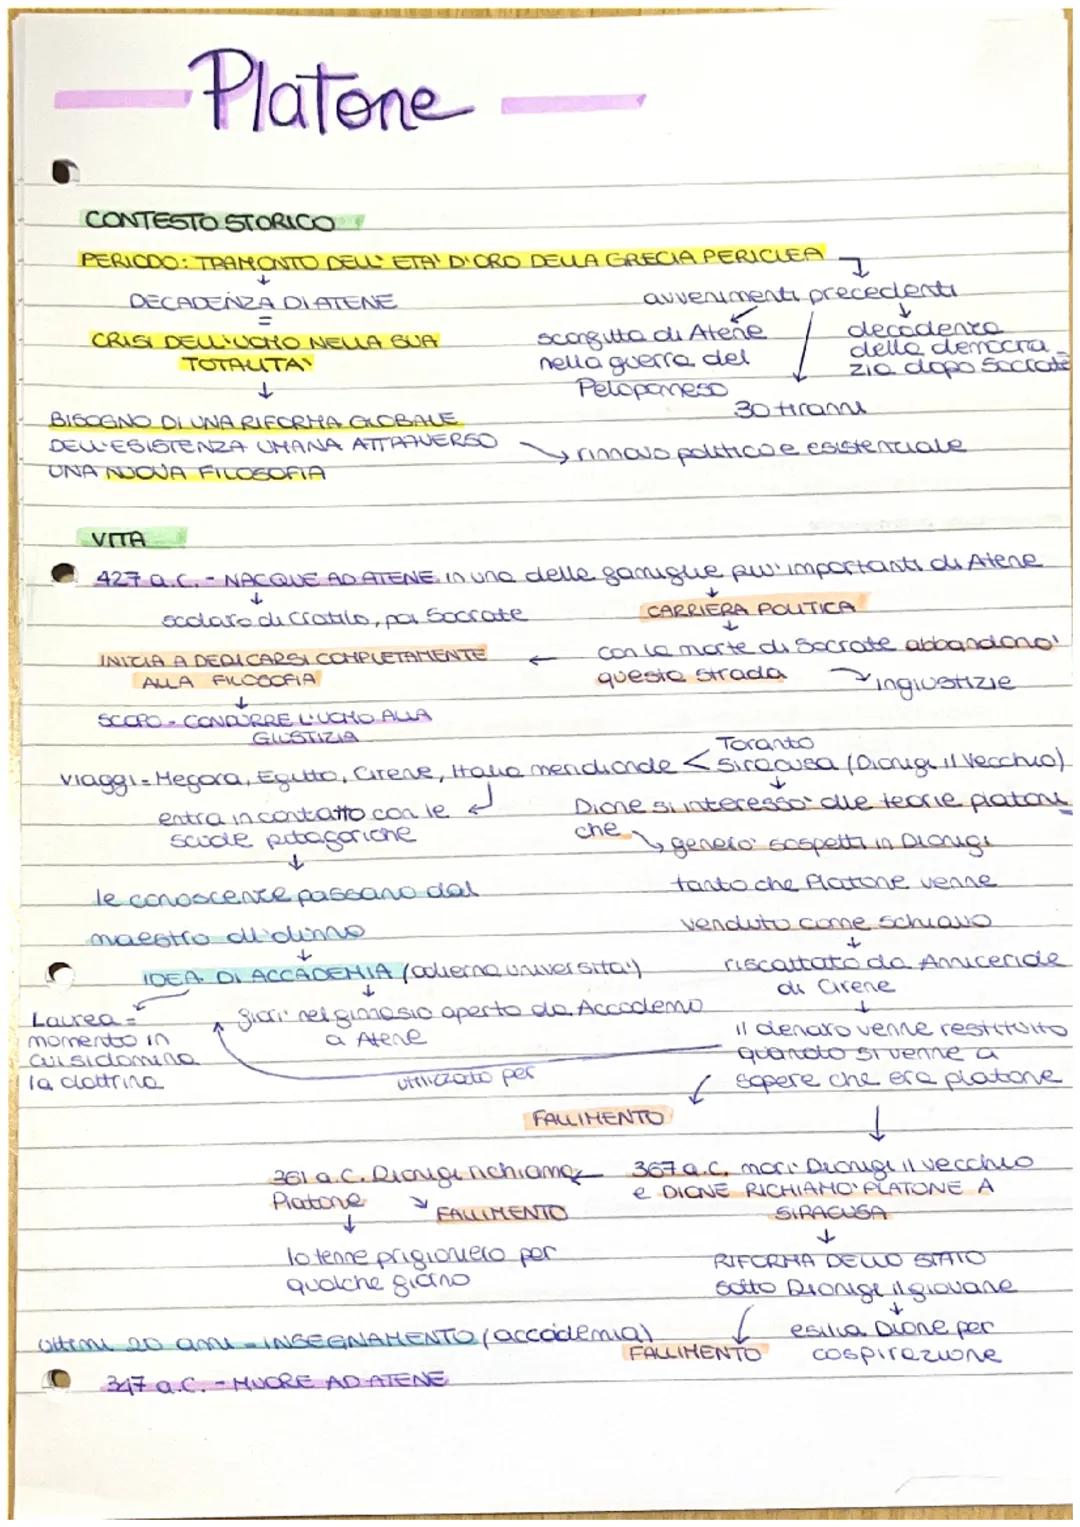 Platone
CONTESTO STORICO
PERIODO: TRAMONTO DELL' ETA' D'ORO DELLA GRECIA PERICLEA
DECADENZA DI ATENE
=
CRISI DELL'UOMO NELLA SUA
TOTALITA'
BISOGNO DI UNA RIFORMA GLOBALE
DELL'ESISTENZA UMANA ATTRAVERSO
UNA NUOVA FILOSOFIA
avvenimenti precedenti
sconfitta di Atene
nella guerra del
Peloponneso
30 tiranni
decadenza
della democra-
zia dopo Socrate
rinnovo politico e esistenziale
VITA
427 a.C. - NACQUE AD ATENE in una delle famiglie piu' importanti di Atene
scolaro di Cratilo, poi Socrate
CARRIERA POLITICA
con la morte di Socrate abbandono'
questa strada
ingiustizie
INIZIA A DEDICARSI COMPLETAMENTE
ALLA FILOSOFIA
SCOPO - CONDURRE L'UOMO ALLA
GIUSTIZIA
viaggi = Megara, Egitto, Cirene, Italia meridionale <
Taranto
Siracusa (Dionigi il Vecchio)
entra in contatto con le
scuole pitagoriche
le conoscenze passano dal
maestro al
IDEA DI ACCADEMIA (odierna universita')
Laurea =
momento in
cui si domina
la dottrina
giari' nel ginnasio aperto da Accademo
a Atene
utilizzato per
Dione si interesso' alle teorie platoni
che
genero' sospetti in Dionigi
tanto che Platone venne
venduto come schiavo
riscattato da Anniceride
di Cirene
il denaro venne restituito
quando si venne a
sapere che era platone
FALLIMENTO
367 a.C. mori' Dionigi il vecchio
e DIONE RICHIAMO' PLATONE A
SIRACUSA
RIFORMA DELLO STATO
sotto Dionigi il giovane
esilia Dione per
cospirazione
FALLIMENTO
361 a.C. Dionigi richiama
Platone
FALLIMENTO
lo tenne prigioniero per
qualche giorno
ultimi 20 anni - INSEGNAMENTO (accademia)
347 a.C. - MUORE AD ATENE